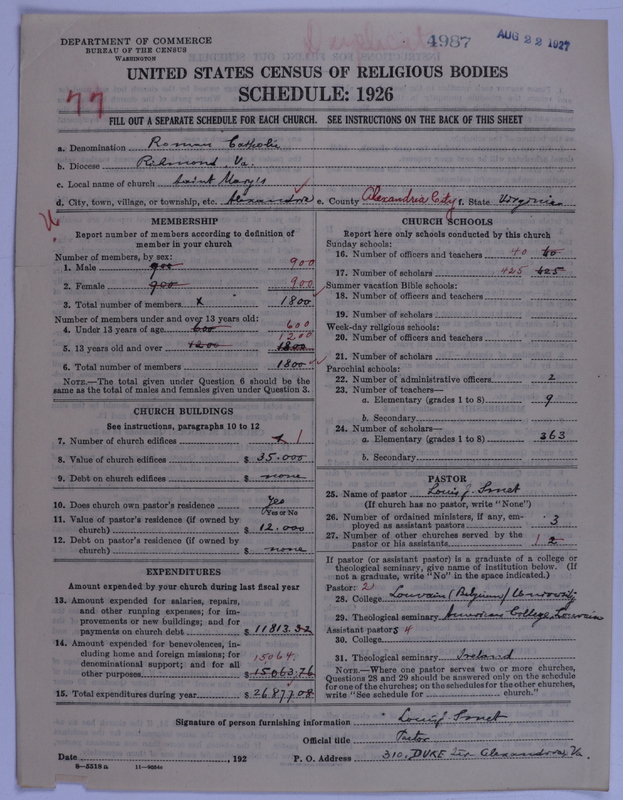 DEPARTMENT OF COMMERCE
BUREAU OF THE CENSUS
WASHINGTON
Duplicate
4987
AUG 22 1927
UNITED STATES CENSUS OF RELIGIOUS BODIES
77
SCHEDULE: 1926
FILL OUT A SEPARATE SCHEDULE FOR EACH CHURCH. SEE INSTRUCTIONS ON THE BACK OF THIS SHEET
a. Denomination Roman Catholic
b. Diocese Richmond, Va.
c. Local name of church Saint Mary's
d. City, town, village, or township, etc. Alexandria e. County Alexandria City f. State Virginia
MEMBERSHIP
Report number of members according to definition of
member in your church
Number of members, by sex:
1. Male 900 900
2. Female 900 900
3. Total number of members x 1800
Number of members under and over 13 years old:
4. Under 13 years of age 600 600
1200
5. 13 years old and over 1200 1800
6. Total number of members 1800
NOTE.—The total given under Question 6 should be
same as the total of males and females given under Question 3.
CHURCH BUILDINGS
See instructions, paragraphs 10 to 12
7. Number of church edifices 1
8. Value of church edifices $ 35.000
9. Debt on church edifices $ none
10. Does church own pastor's residence Yes
Yes or No
11. Value of pastor's residence (if owned by
church) $ 12.000
12. Debt on pastor's residence (if owned by
church) $ none
EXPENDITURES
Amount expended by your church during last fiscal year
13. Amount expended for salaries, repairs,
and other running expenses; for im-
provements or new buildings; and for
payments on church debt $ 11813.32
14. Amount expended for benevolences, in-
cluding home and foreign missions; for
denominational support; and for all
15064
other purposes $ 15063.76
15. Total expenditures during year $ 26877.08
CHURCH SCHOOLS
Report here only schools conducted by this church
Sunday schools:
16. Number of officers and teachers 40 40
17. Number of scholars 425 425
Summer vacation Bible schools:
18. Number of officers and teachers
19. Number of scholars
Week-day religious schools:
20. Number of officers and teachers
21. Number of scholars
Parochial schools:
22. Number of administrative officers 2
23. Number of teachers—
a. Elementary (grades 1 to 8) 9
b. Secondary
24. Number of scholars—
a. Elementary (grades 1 to 8) 363
b. Secondary
PASTOR
25. Name of pastor Louis J. Smet
(If church has no pastor, write "None")
26. Number of ordained ministers, if any, em-
ployed as assistant pastors 3
27. Number of other churches served by the
pastor or his assistants 1 2
If pastor (or assistant pastor) is a graduate of a college or
theological seminary, give name of institution below. (If
not a graduate, write "No" in the space indicated.)
Pastor: 2
28. College Louvain (Belgium) University
29. Theological seminary American College, Louvain
Assistant pastors 4
30. College
31. Theological seminary Ireland
NOTE.—Where one pastor serves two or more churches,
Questions 28 and 29 should be answered only on the schedule
for one of the churches; on the schedules for the other churches,
write "See schedule for church."
Signature of person furnishing information Louis J. Smet
Official title Pastor
Date , 192 P. O. Address 310, DUKE Alexandria, Va.
8—5318a 11—9054a